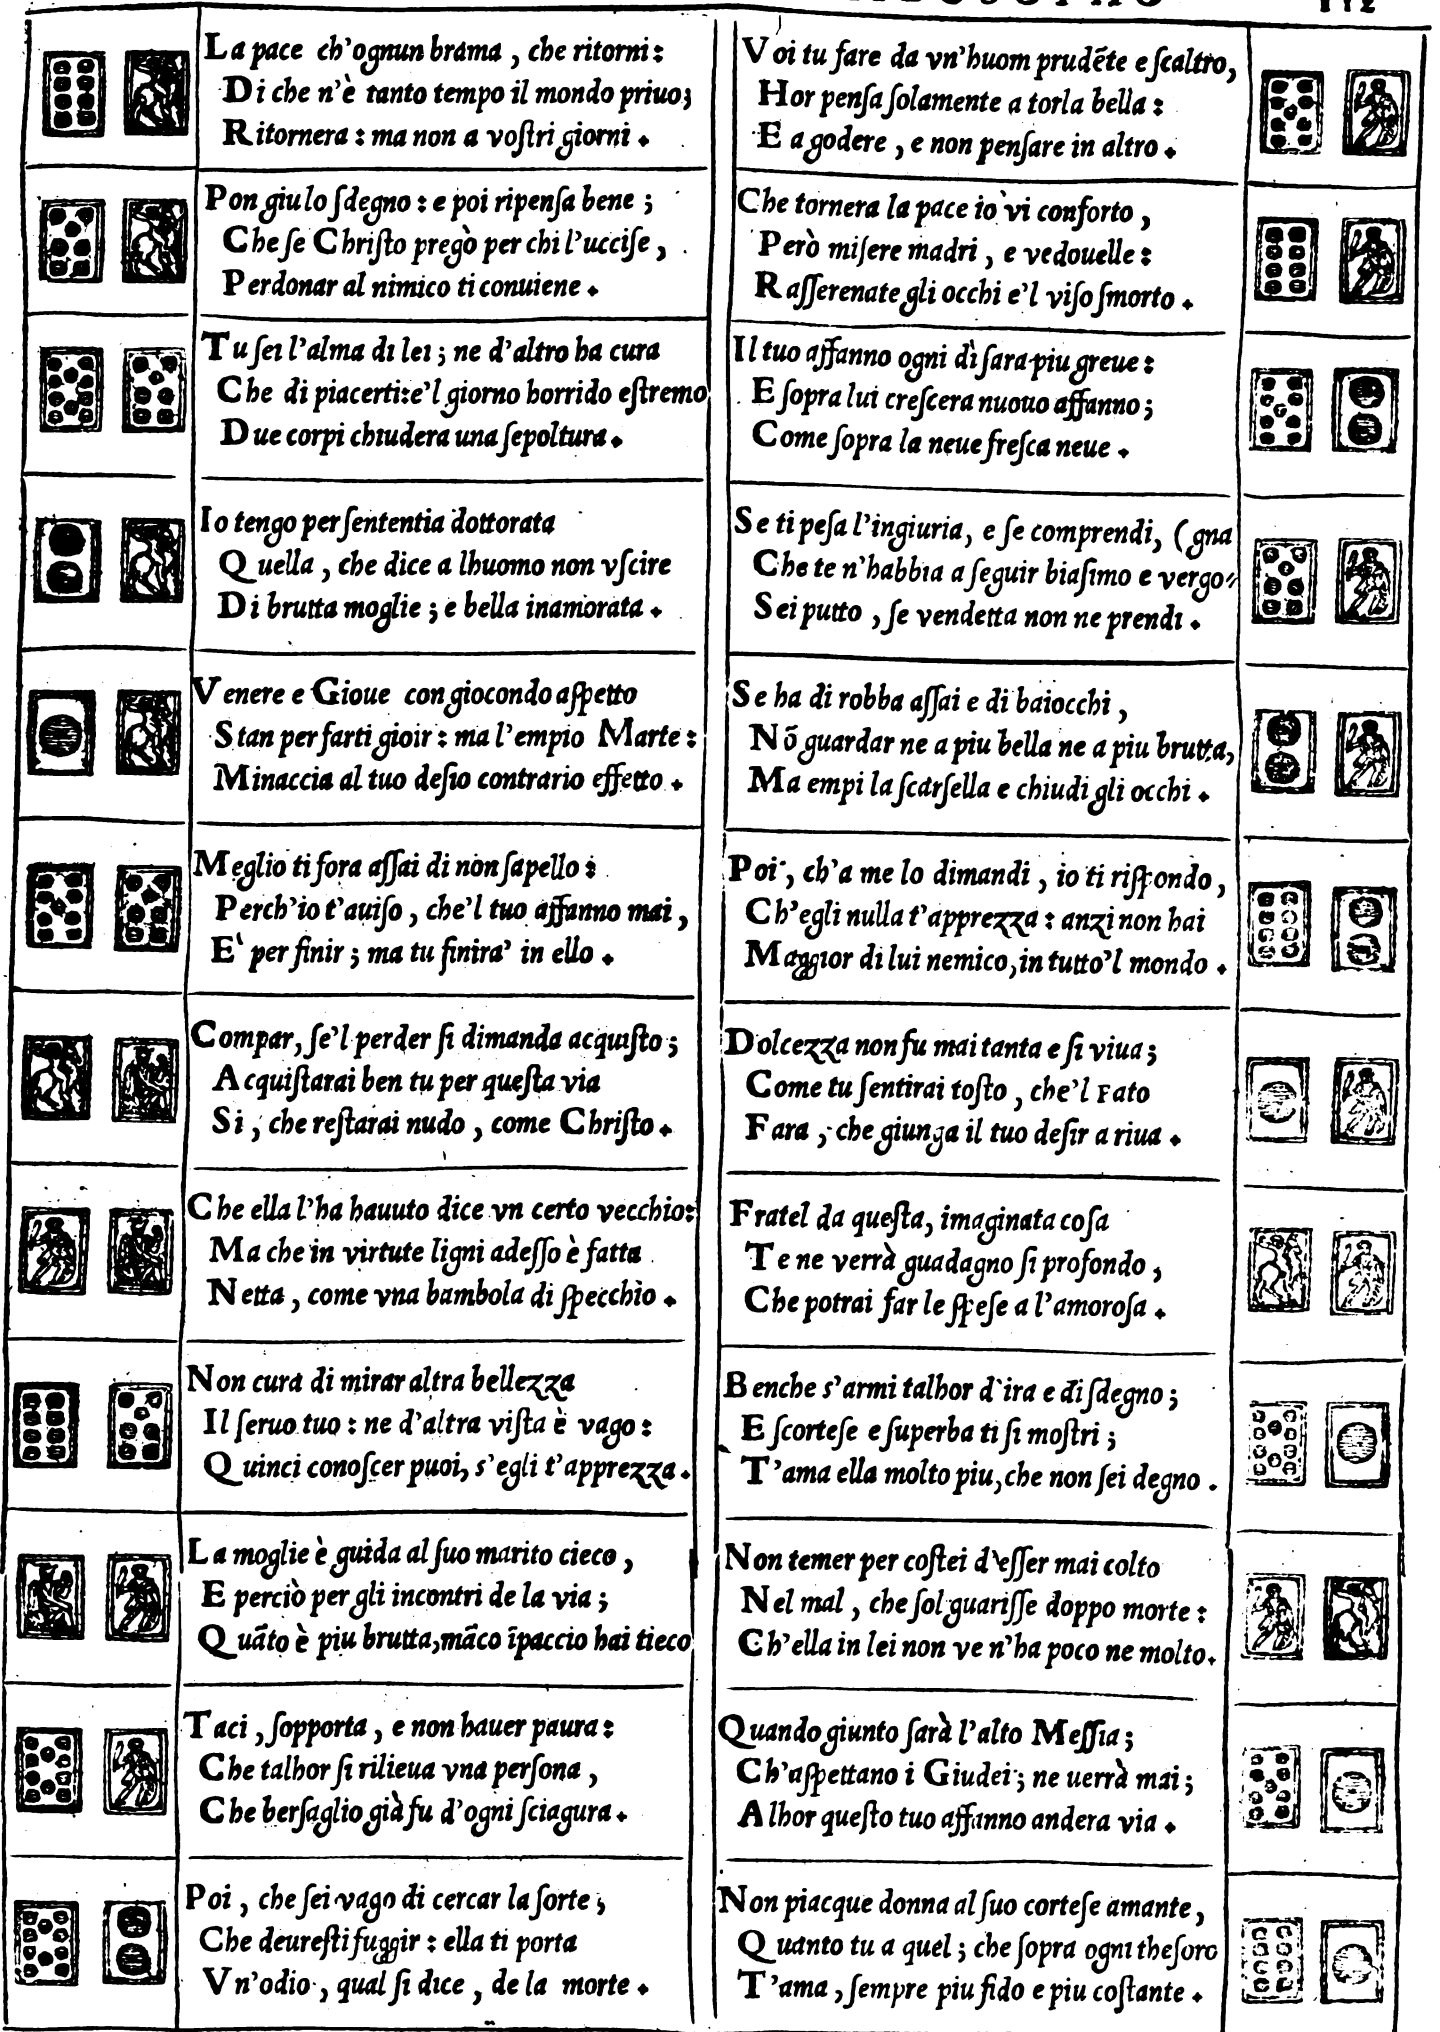 112
La pace ch'ognun brama, che ritorni:
Di che n'è tanto tempo il mondo priuo;
Ritornera: ma non a voſtri giorni.
Pon giu lo ſdegno: e poi ripenſa bene;
Che ſe Chriſto pregò per chi l'ucciſe,
Perdonar al nimico ti conuiene.
Tu ſei l'alma di lei; ne d'altro ha cura
Che di piacerti: e'l giorno horrido eſtremo
Due corpi chiudera una ſepoltura.
Io tengo per ſententia dottorata
Quella, che dice a lhuomo non vſcire
Di brutta moglie; e bella inamorata.
Venere e Gioue con giocondo aſpetto
Stan per farti gioir: ma l'empio Marte:
Minaccia al tuo deſio contrario effetto.
Meglio ti fora aſſai di non ſapello:
Perch'io t'auiſo, che'l tuo affanno mai,
E' per finir; ma tu finira' in ello.
Compar, ſe'l perder ſi dimanda acquiſto;
Acquiſtarai ben tu per queſta via
Si, che reſtarai nudo, come Chriſto.
Che ella l'ha hauuto dice vn certo vecchio:
Ma che in virtute ligni adeſſo è fatta
Netta, come vna bambola di ſpecchio.
Non cura di mirar altra bellezza
Il ſeruo tuo: ne d'altra viſta è vago:
Quinci conoſcer puoi, s'egli t'apprezza.
La moglie è guida al ſuo marito cieco,
E perciò per gli incontri de la via;
Quãto è piu brutta, mãco ĩpaccio hai tieco
Taci, ſopporta, e non hauer paura:
Che talhor ſi rilieua vna perſona,
Che berſaglio già fu d'ogni ſciagura.
Poi, che ſei vago di cercar la ſorte;
Che deureſti fuggir: ella ti porta
Vn'odio, qual ſi dice, de la morte.
Voi tu fare da vn'huom prudẽte e ſcaltro,
Hor penſa ſolamente a torla bella:
E a godere, e non penſare in altro.
Che tornera la pace io vi conforto,
Però miſere madri, e vedouelle:
Raſſerenate gli occhi e'l viſo ſmorto.
Il tuo affanno ogni dì ſara piu greue:
E ſopra lui creſcera nuouo affanno;
Come ſopra la neue freſca neue.
Se ti peſa l'ingiuria, e ſe comprendi, (gna
Che te n'habbia a ſeguir biaſimo e vergo-
Sei putto, ſe vendetta non ne prendi.
Se ha di robba aſſai e di baiocchi,
Nõ guardar ne a piu bella ne a piu brutta,
Ma empi la ſcarſella e chiudi gli occhi.
Poi, ch'a me lo dimandi, io ti riſpondo,
Ch'egli nulla t'apprezza: anzi non hai
Maggior di lui nemico, in tutto'l mondo.
Dolcezza non fu mai tanta e ſi viua;
Come tu ſentirai toſto, che'l Fato
Fara, che giunga il tuo deſir a riua.
Fratel da queſta, imaginata coſa
Te ne verrà guadagno ſi profondo,
Che potrai far le ſpeſe a l'amoroſa.
Benche s'armi talhor d'ira e di ſdegno;
E ſcorteſe e ſuperba ti ſi moſtri;
T'ama ella molto piu, che non ſei degno.
Non temer per coſtei d'eſſer mai colto
Nel mal, che ſol guariſſe doppo morte:
Ch'ella in lei non ve n'ha poco ne molto.
Quando giunto ſarà l'alto Meſſia;
Ch'aſpettano i Giudei; ne uerrà mai;
Alhor queſto tuo affanno andera via.
Non piacque donna al ſuo corteſe amante,
Quanto tu a quel; che ſopra ogni theſoro
T'ama, ſempre piu fido e piu coſtante.